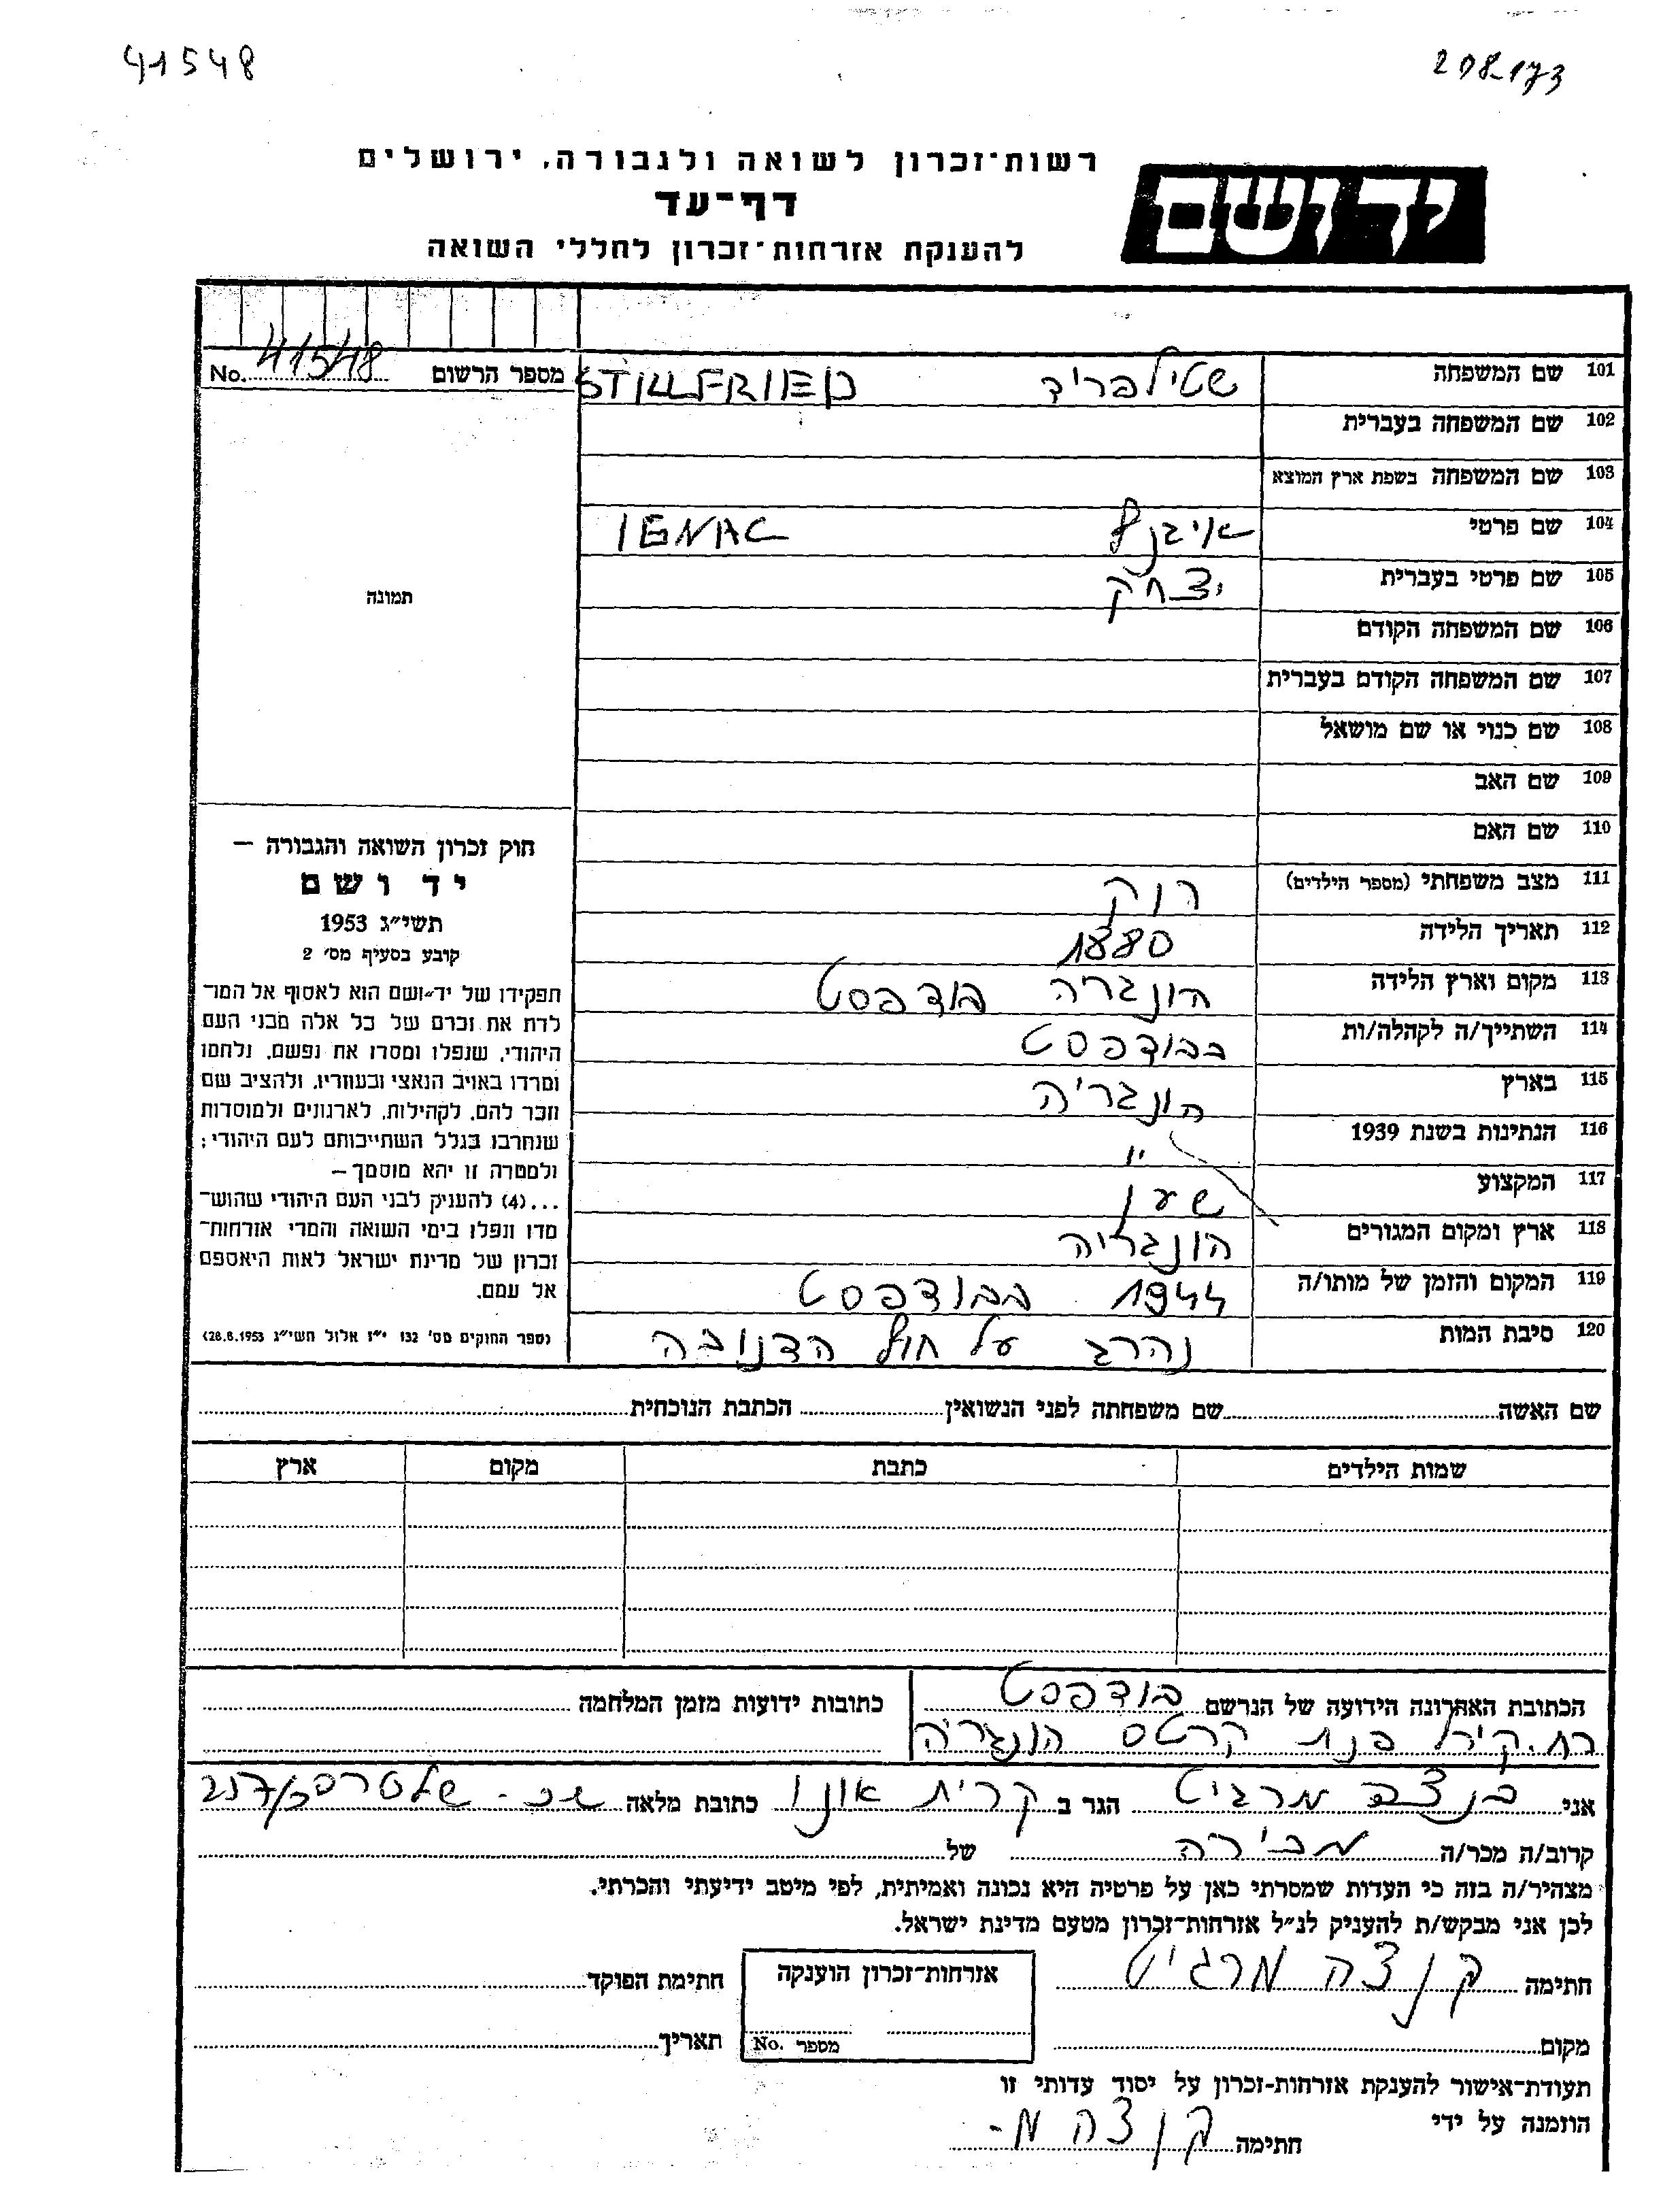 41548
208-173
רשות־זכרון לשואה ולגבורה, ירושלים
דף־עד
להענקת אזרחות־זכרון לחללי השואה
יד ושם
מספר הרשום No. 41548
101 שם המשפחה שטילפריד STILLFRIED
102 שם המשפחה בעברית
103 שם המשפחה בשפת ארץ המוצא
104 שם פרטי איגנץ IGNAC
105 שם פרטי בעברית יצחק
106 שם המשפחה הקודם
107 שם המשפחה הקודם בעברית
108 שם כנוי או שם מושאל
109 שם האב
110 שם האם
111 מצב משפחתי (מספר הילדים) רווק
112 תאריך הלידה 1880
113 מקום וארץ הלידה הונגריה בודפסט
114 השתייך/ה לקהלה/ות בבודפסט
115 בארץ הונגריה
116 הנתינות בשנת 1939 "
117 המקצוע שען
118 ארץ ומקום המגורים הונגריה
119 המקום והזמן של מותו/ה 1944 בבודפסט
120 סיבת המות נהרג על חוף הדנובה
תמונה
חוק זכרון השואה והגבורה –
יד ושם
תשי״ג 1953
קובע בסעיף מס׳ 2
תפקידו של יד־ושם הוא לאסוף אל המו־
לדת את זכרם של כל אלה מבני העם
היהודי, שנפלו ומסרו את נפשם, נלחמו
ומרדו באויב הנאצי ובעוזריו, ולהציב שם
וזכר להם, לקהילות, לארגונים ולמוסדות
שנחרבו בגלל השתייכותם לעם היהודי;
ולמטרה זו יהא מוסמך –
...(4) להעניק לבני העם היהודי שהוש־
מדו ונפלו בימי השואה והמרי אזרחות־
זכרון של מדינת ישראל לאות היאספם
אל עמם.
(ספר החוקים מס׳ 132 י״ז אלול תשי״ג 28.8.1953)
שם האשה שם משפחתה לפני הנשואין הכתבת הנוכחית
שמות הילדים כתבת מקום ארץ
הכתובת האחרונה הידועה של הנרשם בודפסט
הונגריה
כתובות ידועות מזמן המלחמה
אני מרגיט הגר ב קרית אונו כתובת מלאה
קרוב/ה מכר/ה מכירה של
מצהיר/ה בזה כי העדות שמסרתי כאן על פרטיה היא נכונה ואמיתית, לפי מיטב ידיעתי והכרתי.
לכן אני מבקש/ת להעניק לנ״ל אזרחות־זכרון מטעם מדינת ישראל.
חתימה קנצה מרגיט
אזרחות־זכרון הוענקה
מספר No.
חתימת הפוקד
מקום
תאריך
תעודת־אישור להענקת אזרחות־זכרון על יסוד עדותי זו
הוזמנה על ידי
חתימה קנצה מ-